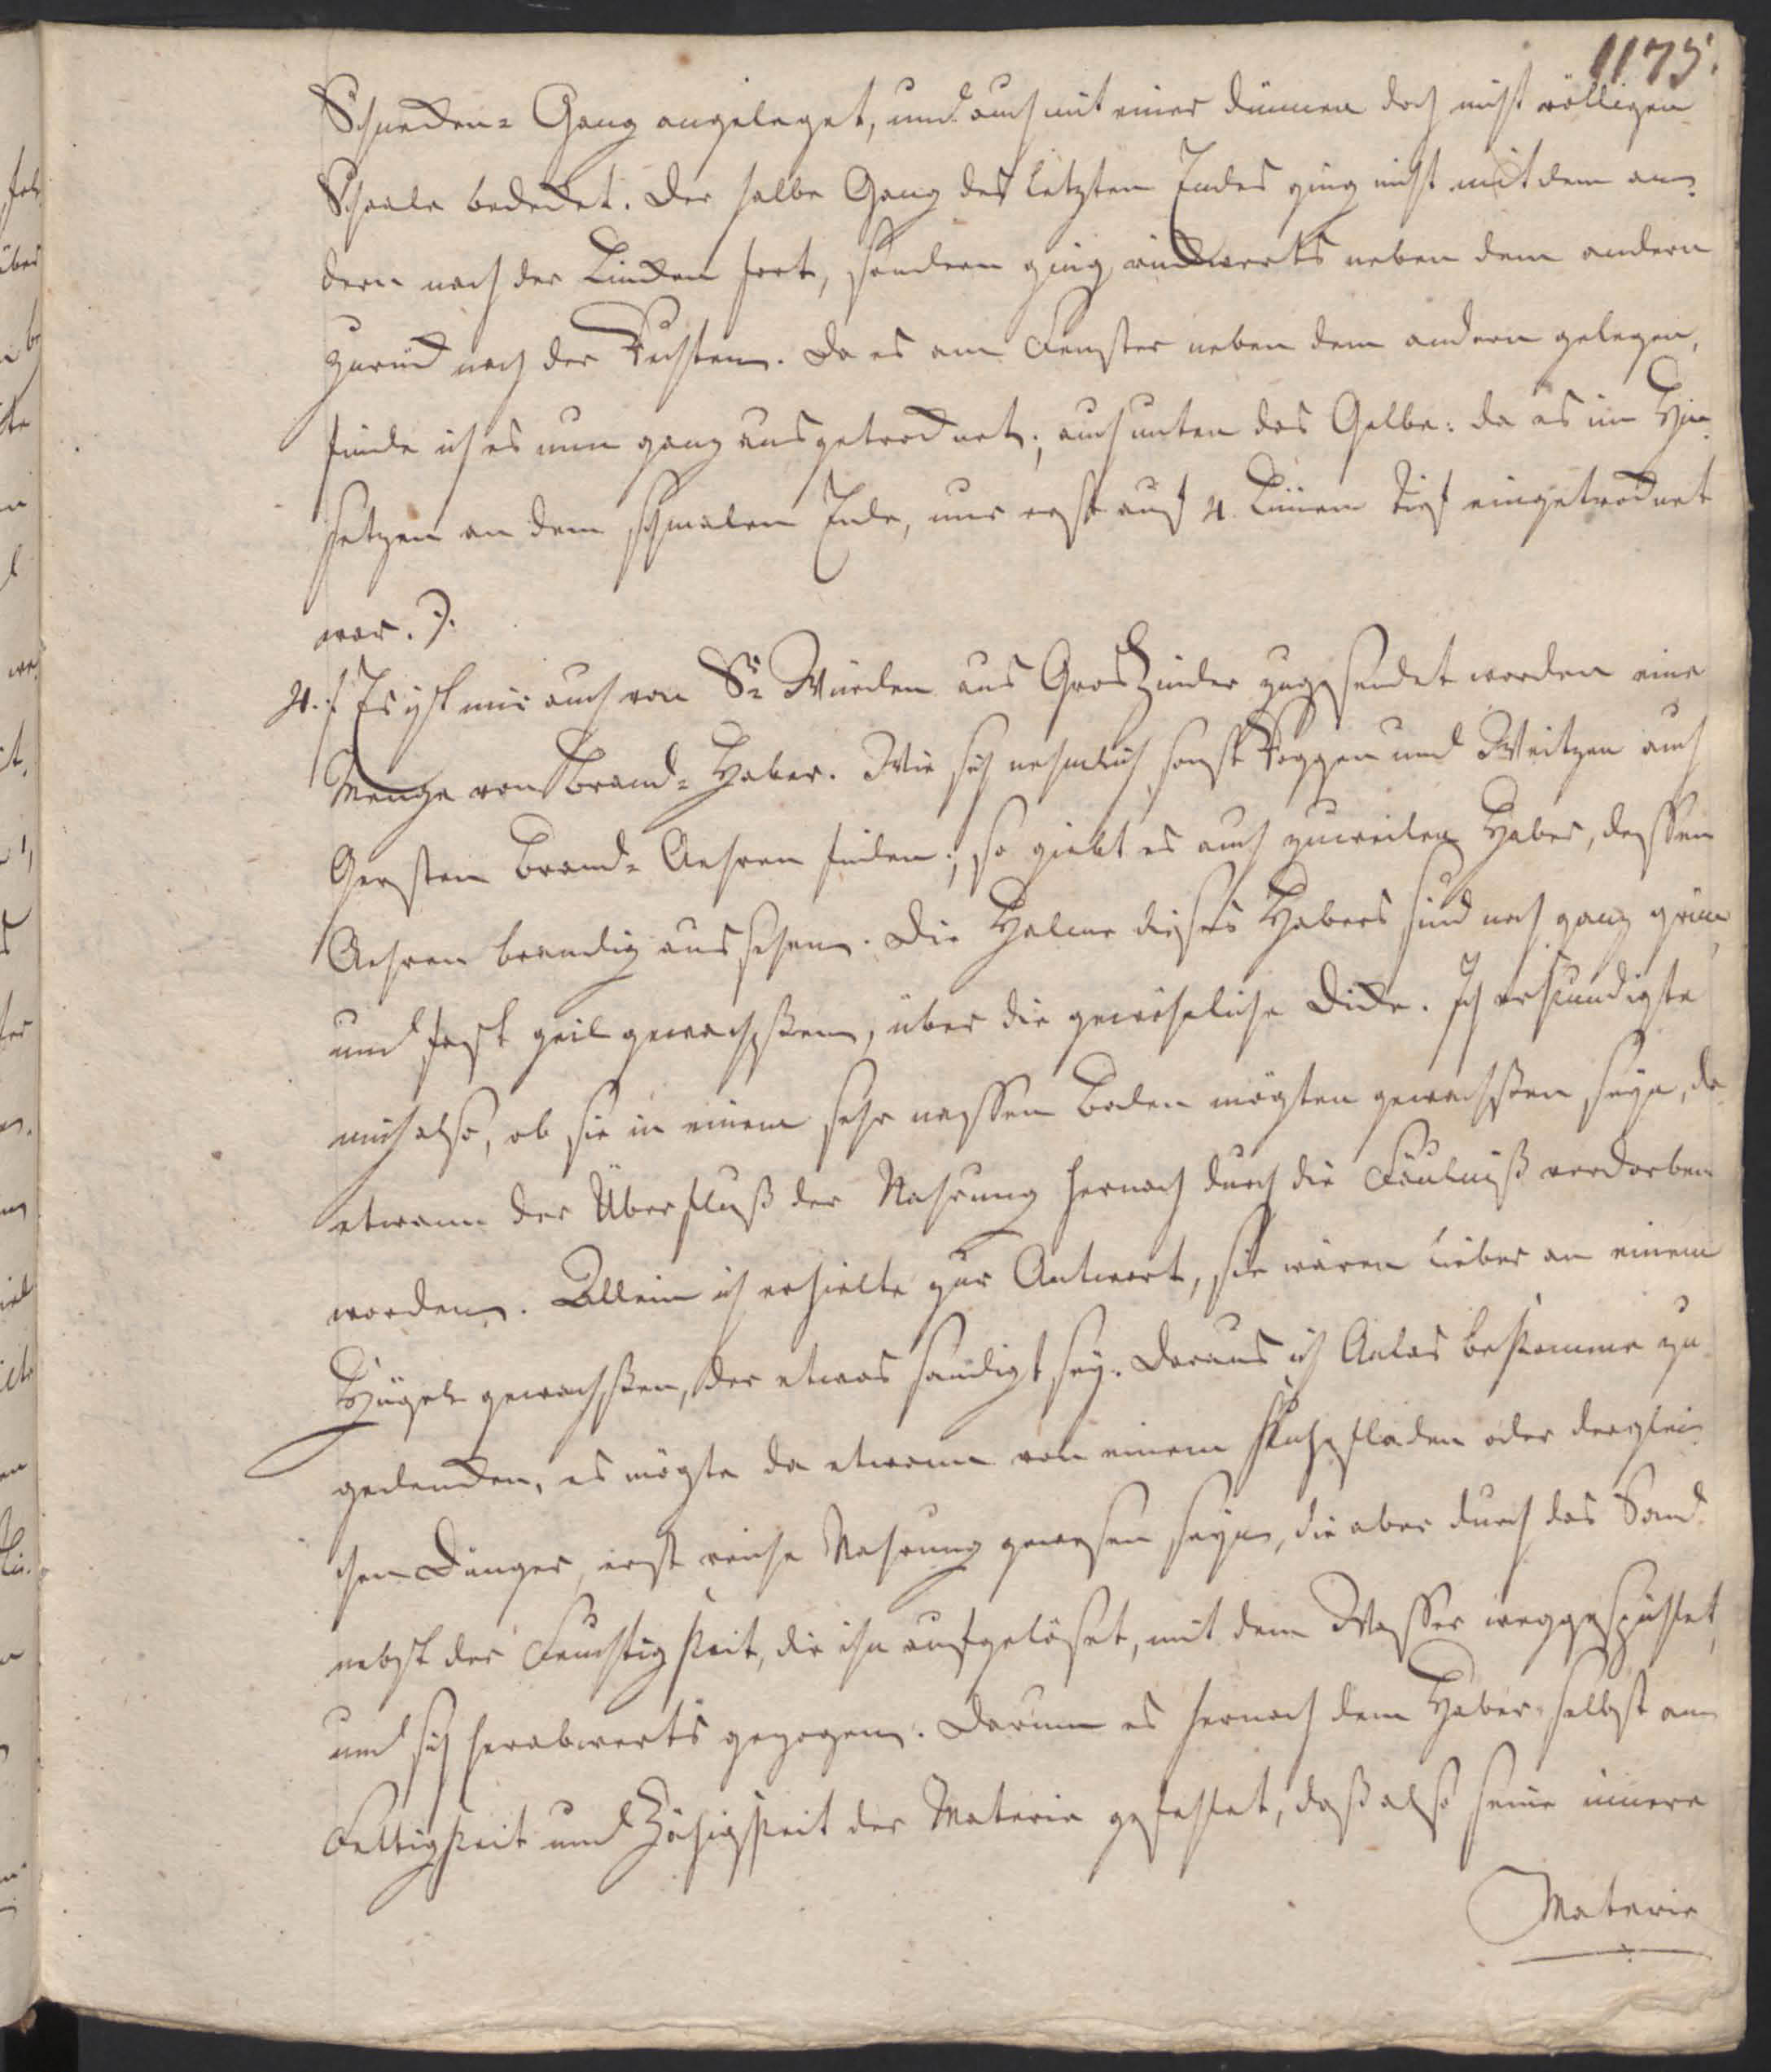 1175.
Schnecken- Gang angeleget, und auch mit einer dünnen doch nicht völligen
Schaale bedecket. Der halbe Gang des letzten Endes ging nicht mit dem an-
dern nach der Lincken fort, sondern ging rückwerts neben dem andern
zurück nach der Rechten. Da es am Fenster neben dem andern gelegen,
finde ich es nun ganz ausgetrocknet; auch unten das Gelbe: da es im Hin-
setzen an dem schmalen Ende, nur erst auf 4. Linien tief eingetrocknet
war.).
4. Es ist mir auch von Sr Würden aus Gros Zünder zugesendet worden eine
Menge von Brand- Haber. Wie sich nehmlich sonst Roggen und Weitzen auch
Gersten Brand- Aehren finden; so giebt es auch zuweilen Haber, dessen
Aehren brandig aussehen. Die Halme dieses Habers sind noch ganz grün
und fast geil gewachssen, über die gewöhnliche Dicke. Ich erkundigte
mich also, ob sie in einem sehr nassen Boden mögten gewachssen seyn, da
etwann der Überfluß der Nahrung hernach durch die Fäulniß verdorben
worden. Allein ich erhielte zur Antwort, sie wären lieber an einem
Hügel gewachssen, der etwas sandigt sey. Daraus ich Anlas bekomme zu
gedencken, es mögte da etwann von einem Kuhfladen oder derglei-
chen Dünger, erst reiche Nahrung gewesen seyn, die aber durch das Sand
nebst der Feuchtigkeit, die ihn aufgelöset, mit dem Wasser weggespühlet,
und sich herabwerts gezogen. Darum es hernach dem Haber selbst an
Fettigkeit und Zähigkeit der Materie gefehlet, daß also seine innere
Materie